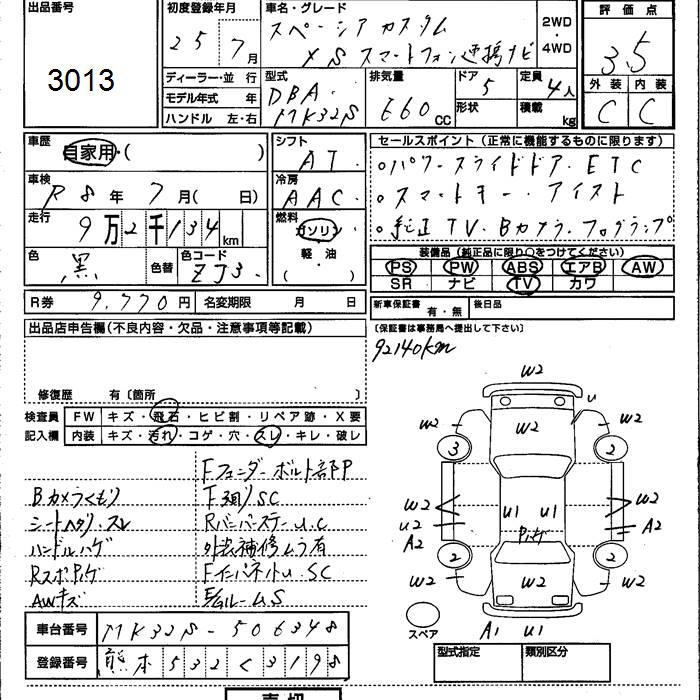 出品番号
3013
初度登録年月
25年 7月
車名・グレード
スペーシア カスタム
XS スマートフォン連携ナビ
2WD
・
4WD
評価点
3.5
外装 内装
C C
ディーラー・並行
モデル年式 年
ハンドル 左・右
型式
DBA-
MK32S
排気量
660 cc
ドア 5
形状
定員 4人
積載 kg
車歴
自家用・( )
車検
R8年 7月( 日)
走行
9万2千134km
色
黒
色替
色コード
ZJ3
シフト
AT
冷房
AAC
燃料
ガソリン
・
軽・油
( )
セールスポイント(正常に機能するものに限ります)
○パワースライドドア・ETC
○スマートキー・アイスト
○純正TV・Bカメラ・フォグランプ
装備品(純正品に限り○をつけてください)
PS PW ABS エアB AW
SR ナビ TV カワ
R券 9,770円
名変期限 月 日
新車保証書 有・無
後日品
出品店申告欄(不良内容・欠品・注意事項等記載)
〔保証書は事務局へ提出して下さい〕
92140km
修復歴 有〔箇所 〕
検査員
記入欄
FW キズ・飛石・ヒビ割・リペア跡・X要
内装 キズ・汚れ・コゲ・穴・スレ・キレ・破レ
Fフェンダーボルト部P
Bカメラくもり
F廻りSC
シートヘタリ・スレ
RバンパーステーU.C
ハンドルハゲ
外装補修ムラ有
RスポPハゲ
FインパネトU.SC
AWキズ
E/GルームS
W2
U
W2 W2 W2
3 2
W2 U1 U1 W2
U2 A2
A2
Pハゲ
2 2
W2 W2 W2
スペア
A1 U1
車台番号 MK32S-506348
登録番号 熊本532く3198
型式指定 類別区分